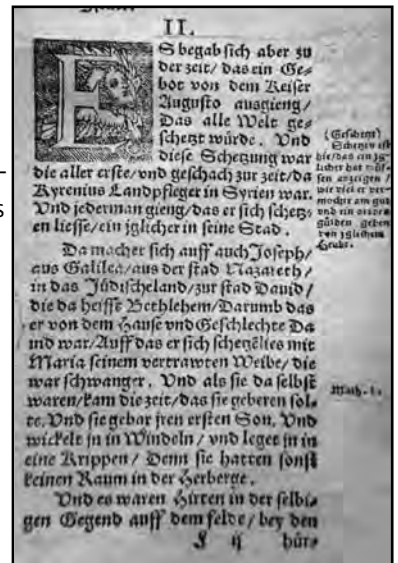 II.
ES begab sich aber zu
der zeit/ das ein Ge⸗
bot von dem Keiser
Augusto ausgieng/
Das alle Welt ge⸗
schetzt würde. Vnd
diese Schetzung war
die aller erste/ vnd geschach zur zeit/ da
Kyrenius Landpfleger in Syrien war.
Vnd jederman gieng/ das er sich schetz⸗
en liesse/ ein jglicher in seine Stad.
Da machet sich auff auch Joseph/
aus Galilea/ aus der stad Nazareth/
in das Jüdischeland/ zur stad Dauid/
die da heisst Bethlehem/ Darumb das
er von dem Hause vnd Geschlechte Da
uid war/ Auff das er sich schetzẽ lies mit
Maria seinem vertrawten Weibe/ die
war schwanger. Vnd als sie da selbst
waren/ kam die zeit/ das sie geberen sol⸗
te. Vnd sie gebar jren ersten Son, Vnd
wickelt jn in Windeln/ vnd leget jn in
eine Krippen/ Denn sie hatten sonst
keinen Raum in der Herberge.
Vnd es waren Hirten in der selbi⸗
gen Gegend auff dem felde/ bey den
J ij hür⸗
(Geschetzt)
Schetzen ist
hie/ das ein jg⸗
licher hat müs⸗
sen anzeigen/
wie viel er ver⸗
mocht am gut
vnd ein
gülden geben
von jglichem
Heubt.
Math. 1.
s